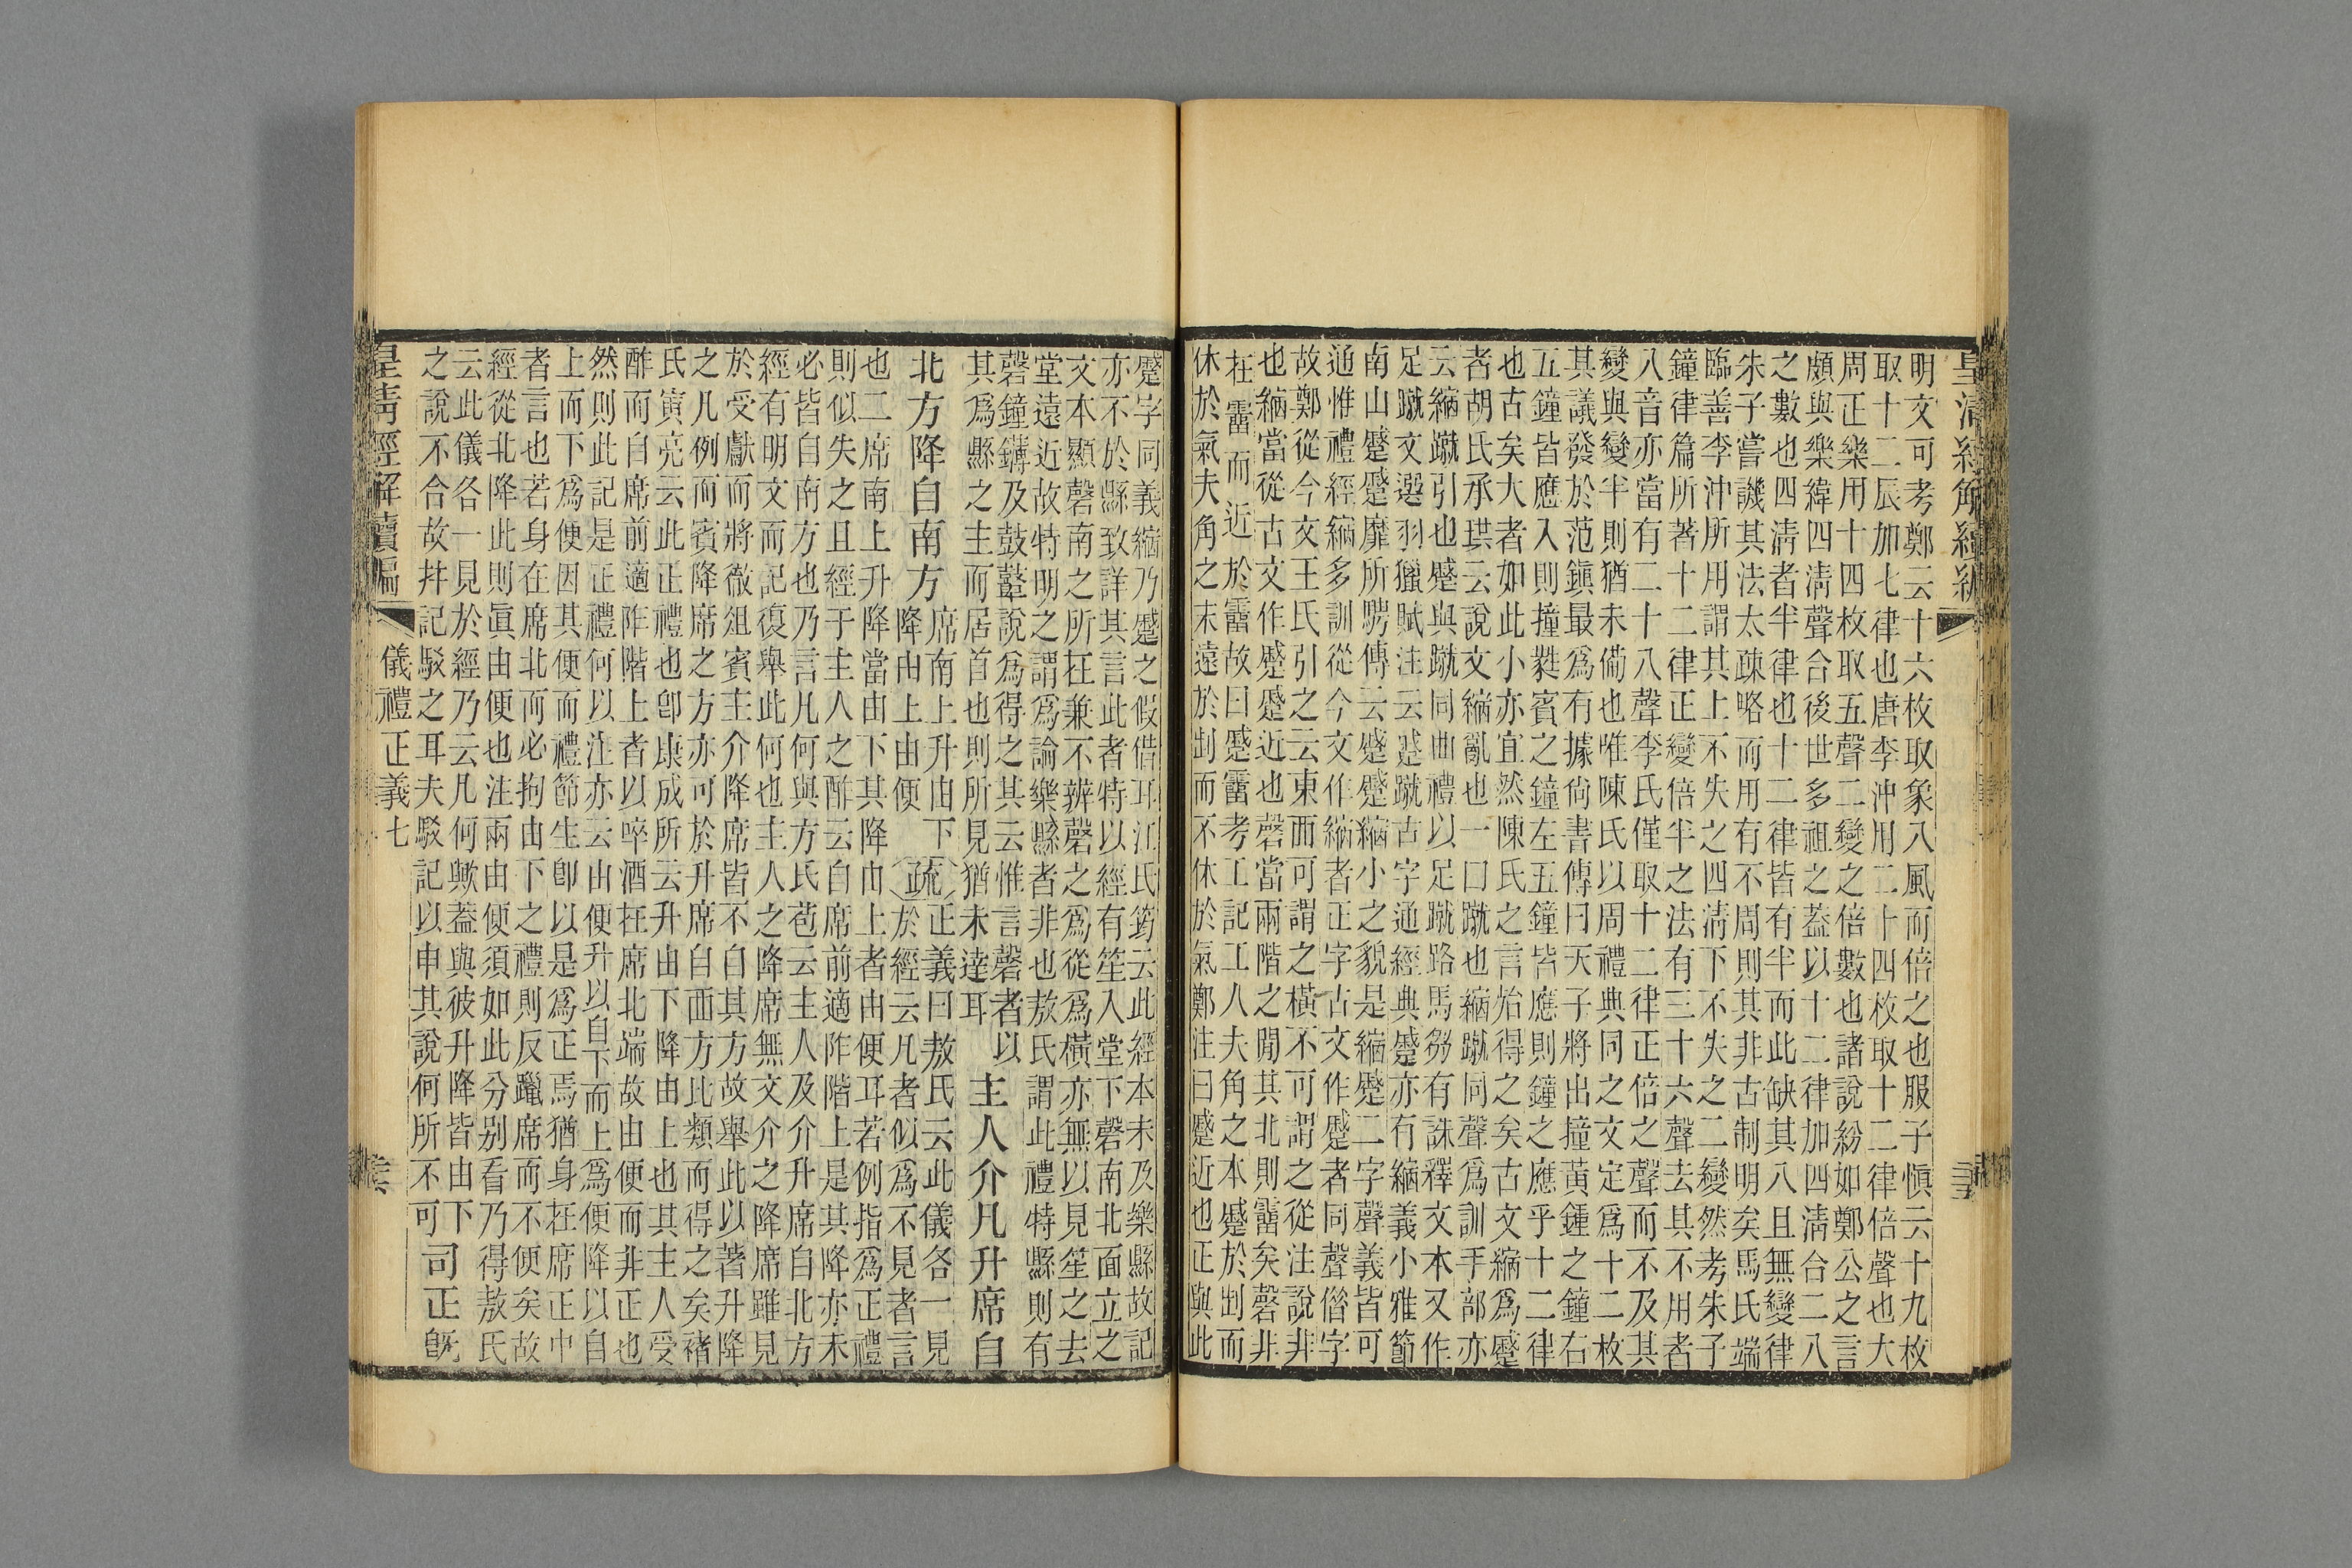 皇清經解續編
明文可考鄭云十六枚取象八風而倍之也服子慎云十九枚
取十二辰加七律也唐李沖用二十四枚取十二律倍聲也大
周正樂用十四枚取五聲二變之倍數也諸說紛如鄭公之言
頗與樂緯四淸聲合後世多祖之葢以十二律加四淸合二八
之數也四淸者半律也十二律皆有半而此缺其八且無變律
朱子嘗譏其法太疎略而用有不周則其非古制明矣馬氏端
臨善李沖所用謂其上不失之四淸下不失之二變然考朱子
鐘律篇所著十二律正變倍半之法有三十六聲去其不用者
八音亦當有二十八聲李氏僅取十二律正倍之聲而不及其
變與變半則猶未備也唯陳氏以周禮典同之文定爲十二枚
其議發於范鎭最爲有據尙書傳曰天子將出撞黃鍾之鐘右
五鐘皆應入則撞蕤賓之鐘左五鐘皆應則鐘之應乎十二律
也古矣大者如此小亦宜然陳氏之言始得之矣古文縮爲蹙
者胡氏承珙云說文縮亂也一曰蹴也縮蹴同聲爲訓手部亦
云縮蹴引也蹙與蹴同曲禮以足蹴路馬芻有誅釋文本又作
足蹴文選羽獵賦注云蹵蹴古字通經典蹙亦有縮義小雅節
南山蹙蹙靡所騁傳云蹙蹙縮小之貌是縮蹙二字聲義皆可
通惟禮經縮多訓從今文作縮者正字古文作蹙者同聲借字
故鄭從今文王氏引之云東西可謂之橫不可謂之從注說非
也縮當從古文作蹙蹙近也磬當兩階之閒其北則霤矣磬非
在霤而近於霤故曰蹙霤考工記工人夫角之本蹙於剒而
休於氣夫角之末遠於剒而不休於氣鄭注曰蹙近也正與此
蹙字同義縮乃蹙之假借耳江氏筠云此經本未及樂縣故記
亦不於縣致詳其言此者特以經有笙入堂下磬南北面立之
文本顯磬南之所在兼不辨磬之爲從爲橫亦無以見笙之去
堂遠近故特明之謂爲論樂縣者非也敖氏謂此禮特縣則有
磬鐘鏄及鼓鼙說爲得之其云惟言磬者以
其爲縣之主而居首也則所見猶未達耳 主人介凡升席自
北方降自南方 席南上升由下
降由上由便 疏 正義曰敖氏云此儀各一見
於經云凡者似爲不見者言
也二席南上升降當由下其降由上者由便耳若例指爲正禮
則似失之且經于主人之酢云自席前適阼階上是其降亦未
必皆自南方也乃言凡何與方氏苞云主人及介升席自北方
經有明文而記復舉此何也主人之降席無文介之降席雖見
於受獻而將徹俎賓主介降席皆不自其方故舉此以著升降
之凡例而賓降席之方亦可於升席自西方比類而得之矣褚
氏寅亮云此正禮也卽康成所云升由下降由上也其主人受
酢而自席前適阼階上者以啐酒在席北端故由便而非正也
然則此記是正禮何以注亦云由便升以自下而上爲便降以自
上而下爲便因其便而禮節生卽以是爲正焉猶身在席正中
者言也若身在席北而必拘由下之禮則反躐席而不便矣故
經從北降此則眞由便也注兩由便須如此分别看乃得敖氏
云此儀各一見於經乃云凡何歟蓋與彼升降皆由下
之說不合故幷記駁之耳夫駁記以申其說何所不可 司正旣
皇清經解續編 儀禮正義七